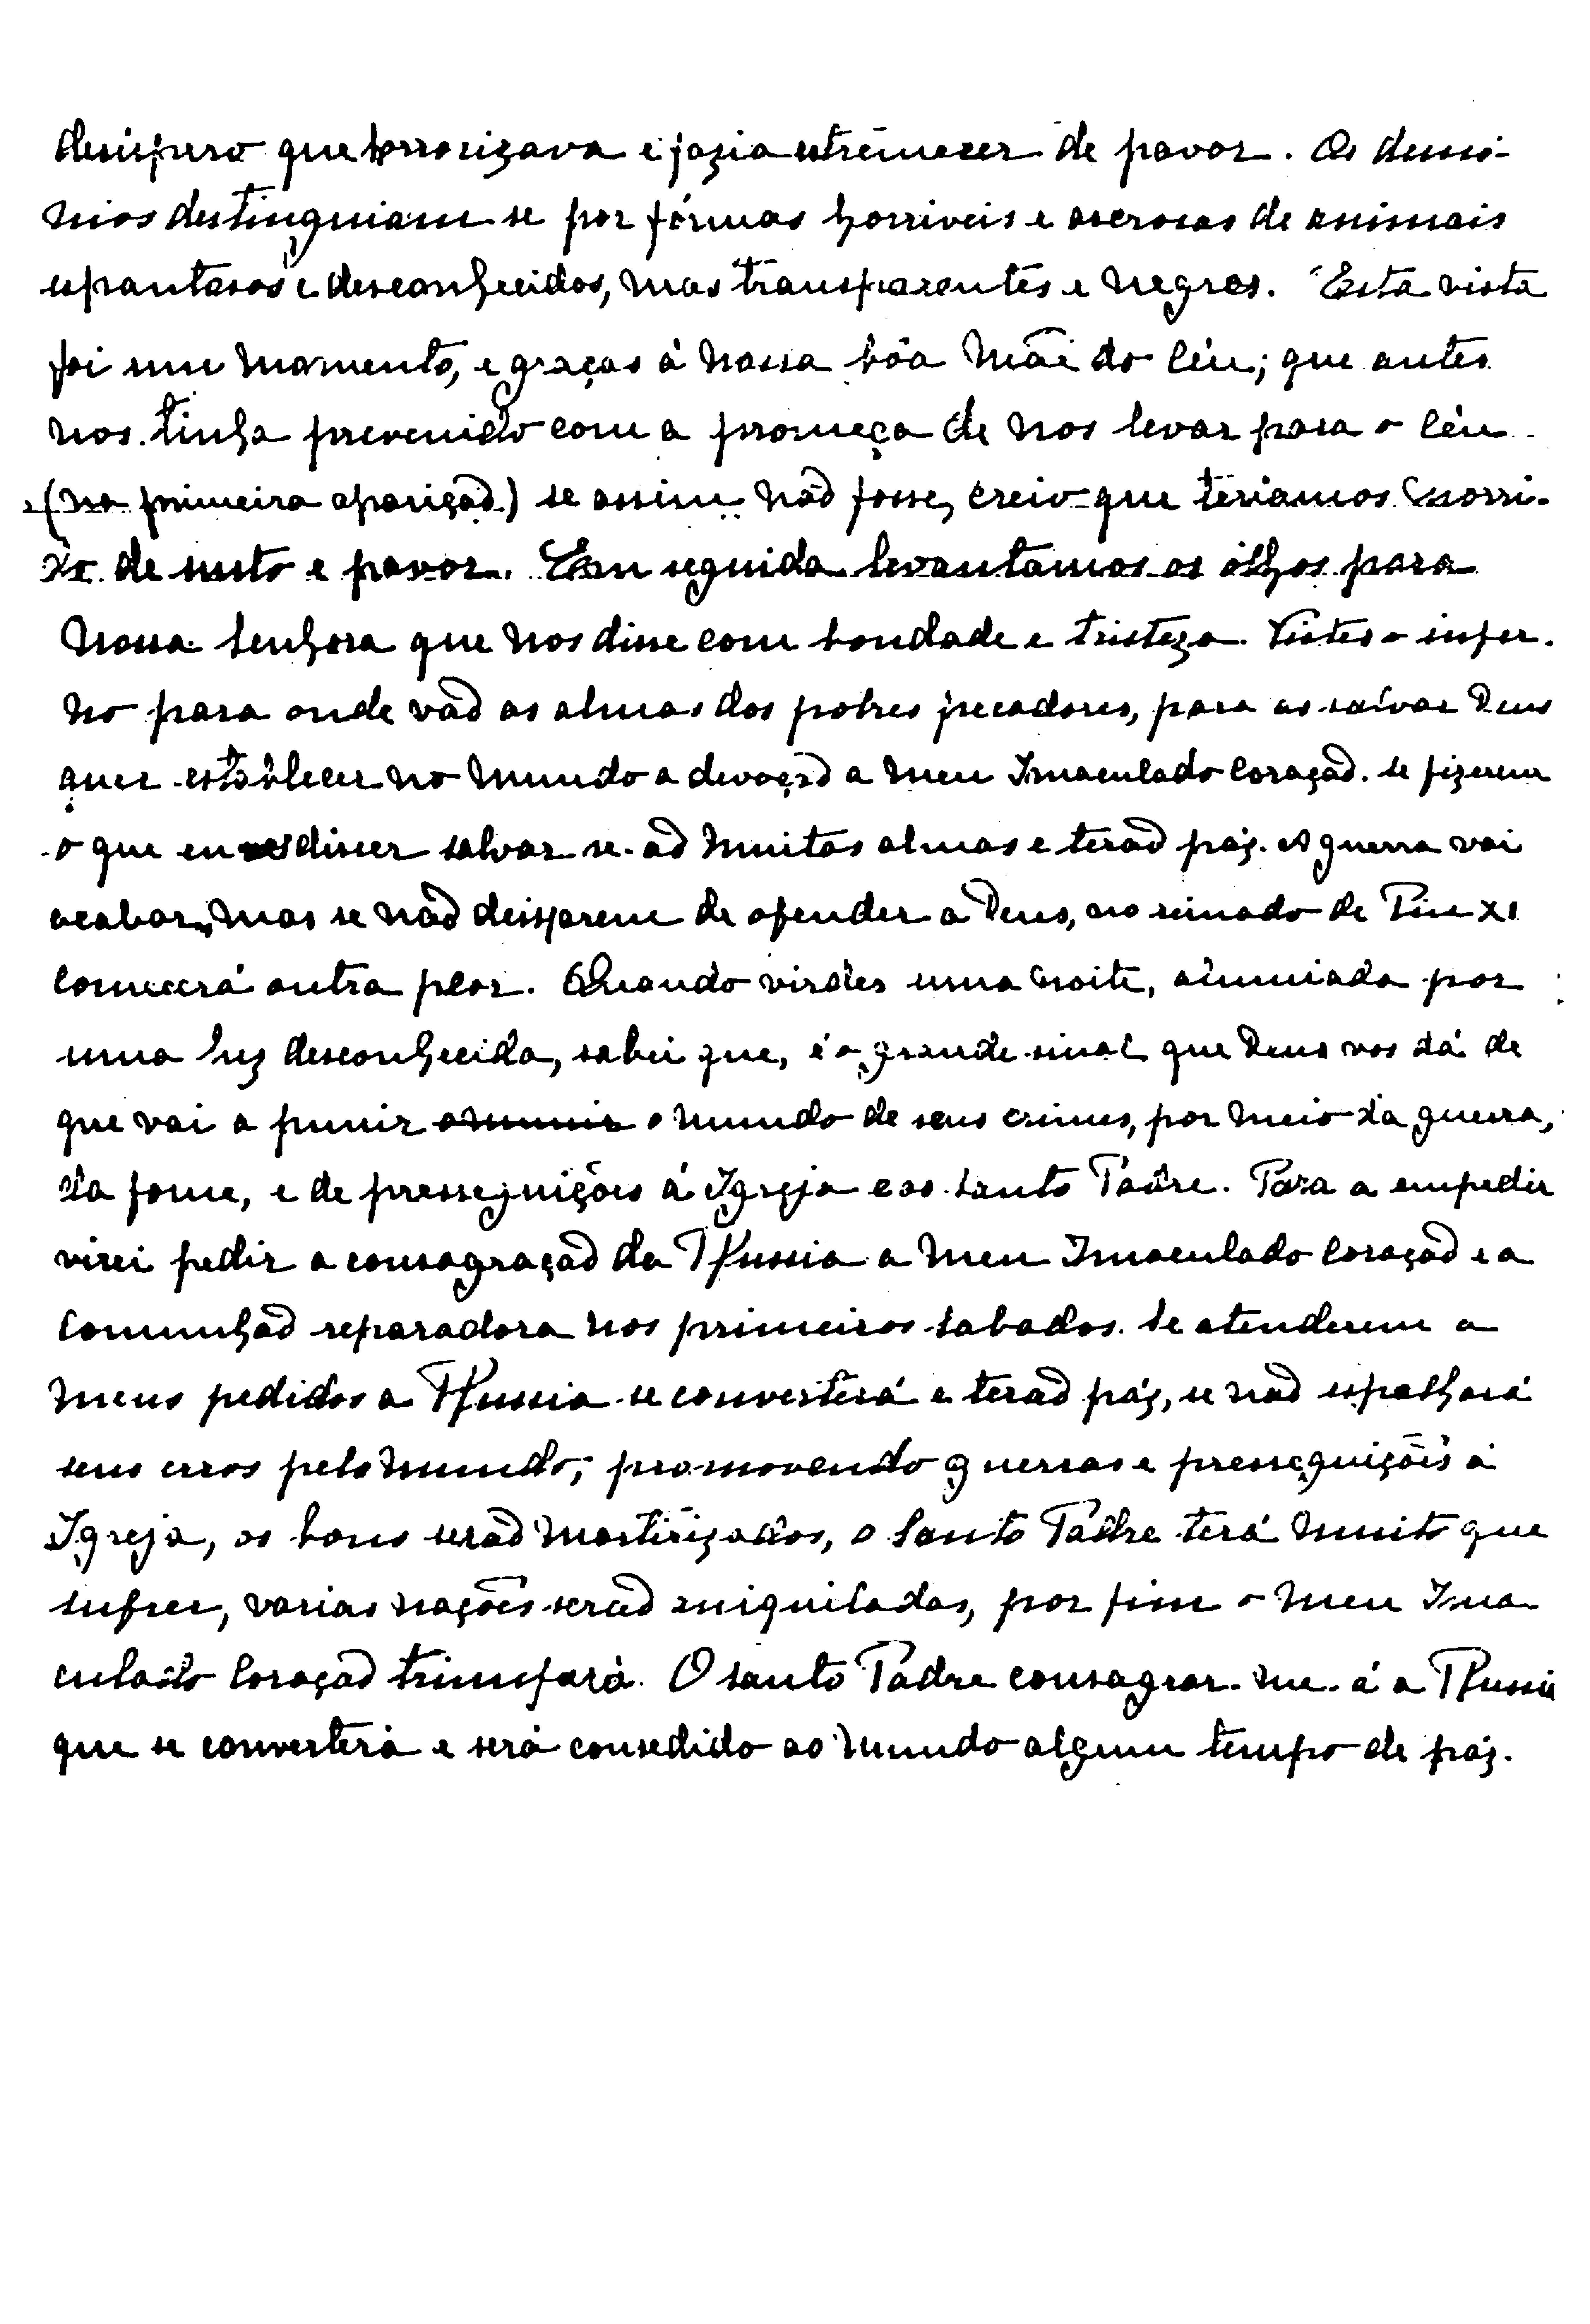 desespero que horrorizava e fazia estremecer de pavor. Os demo-
nios destinguiam-se por fórmas horriveis e ascrosas de animais
espantosos e desconhecidos, mas transparentes e negros. Esta vista
foi um momento, e graças á nossa bôa Mãe do Céu; que antes
nos tinha prevenido com a promeça de nos levar para o Céu
(na primeira aparição) se assim não fosse, creio que teriamos morri-
do de susto e pavor. Em seguida levantamos os olhos para
Nossa Senhora que nos disse com bondade e tristeza. Vistes o infer-
no para onde vão as almas dos pobres pecadores, para as salvar Deus
quer establecer no mundo a devoção a meu Imaculado Coração. Se fizerem
o que eu disser salvar-se-ão muitas almas e terão páz. A guerra vai
acabar, mas se não deixarem de ofender a Deus, no reinado de Pio XI
comecerá outra peor. Quando virdes uma noite, alumiada por
uma luz desconhecida, sabei que, é o grande sinal que Deus vos dá de
que vai a punir o mundo de seus crimes, por meio da guerra,
da fome, e de presseguições á Igreja e ao Santo Padre. Para a empedir
virei pedir a consagração da Russia a meu Imaculado Coração e a
Comunhão reparadora nos primeiros sabados. Se atenderem a
meus pedidos a Russia se converterá e terão páz, se não espalhará
seus erros pelo mundo, promovendo guerras e presseguições á
Igreja, os bons serão martirizados, o Santo Padre terá muito que
sufrer, varias nações serão aniquiladas, por fim o meu Ima-
culado Coração triunfará. O santo Padre consagrar-me-á a Russia
que se converterá e será consedido ao mundo algum tempo de páz.